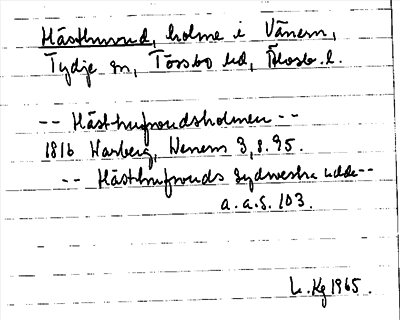 Hästhuvud, holme i Vänern,
Tydje sn, Tössbo hd, Älvsb. l.
-- Hästhufvudsholmen --
1816 Warberg, Wenern 3, s. 95.
-- Hästhufvuds Sydwestra udde --
a.a.S. 103.
L. Kg 1965.